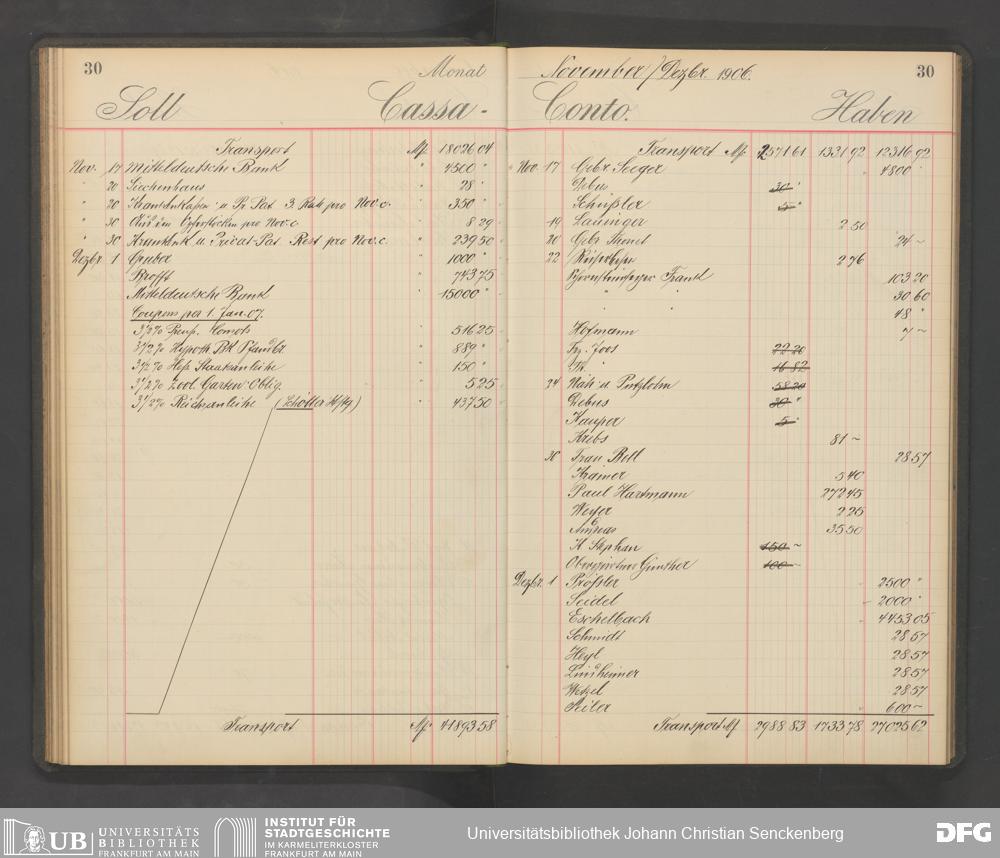 30 Monat
Soll Cassa-
Transport M 18026 04
Nov. 17 Mitteldeutsche Bank " 4500 "
" 20 Siechenhaus " 28 "
" 20 Krankenkassen u. Pr. Pat. 3. Rate pro Nov. c. " 350 "
" 30 pro Nov. c " 8 29
" 30 u. Privat-Pat. Rest pro Nov. c. " 239 50
Dezbr. 1 " 1000 "
" 743 75
Mitteldeutsche Bank " 15000 "
Coupons per 1. Jan. 07.
3½% Preuß. Consols " 516 25
3½% Hypoth. Bk Pfandbr. " 889 "
3½% Hess. Staatsanleihe " 150 "
3½% Zool. Garten Oblig. " 5 25
3½% Reichsanleihe (Schotten Stftg) " 437 50
Transport M 41893 58
November/Dezbr. 1906. 30
Conto. Haben
Transport M 2571 61 1331 92 12316 92
" Nov. 17 Gebr. Seeger " 4800 "
Debus 30 "
Schüßler 5 "
19 Lauinger 2 50
20 Gebr. Thonet 24 ~
22 2 76
Frankl 103 20
" " 30 60
" " 48 "
Hofmann 7 ~
Fr. Joos 22 20
16 82
24 Näh- u Putzlohn 58 20
Debus 30 "
Kauper 5 "
Krebs 81 ~
30 Frau Boll 28 57
Kramer 5 40
Paul Hartmann 272 45
Weyer 2 25
Andreas 35 50
H. Stephan 150 ~
Günther 100 ~
Dezbr. 1 Prößler " 2500 "
Seidel 2000 "
Eschelbach " 4453 05
Schmidt 28 57
Heyl 28 57
Lindheimer 28 57
Wetzel 28 57
" 600 ~
Transport M 2988 83 1733 78 27025 62
UB UNIVERSITÄTS
BIBLIOTHEK
FRANKFURT AM MAIN
INSTITUT FÜR
STADTGESCHICHTE
IM KARMELITERKLOSTER
FRANKFURT AM MAIN
Universitätsbibliothek Johann Christian Senckenberg
DFG